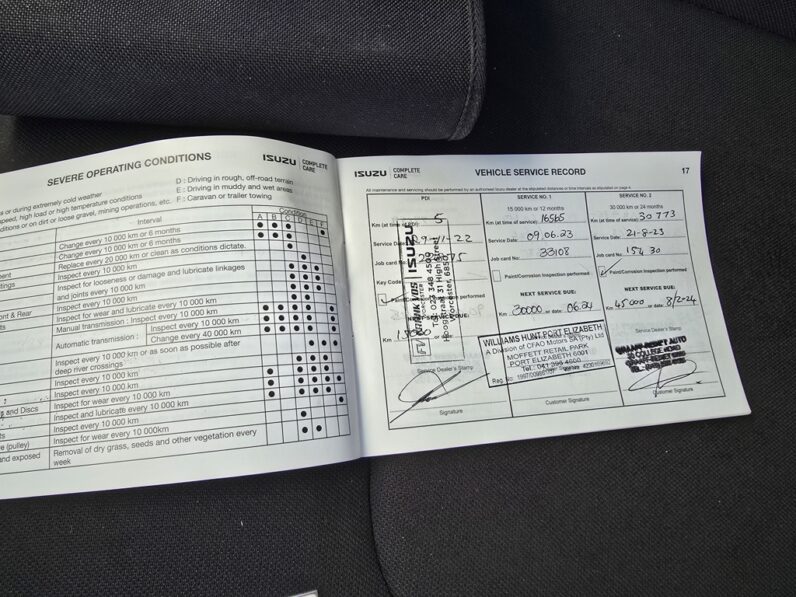 SEVERE OPERATING CONDITIONS
ISUZU COMPLETE CARE
s or during extremely cold weather
D : Driving in rough, off-road terrain
speed, high load or high temperature conditions
E : Driving in muddy and wet areas
nditions or on dirt or loose gravel, mining operations, etc.
F : Caravan or trailer towing
Interval
Condition
A B C D E F
Change every 10 000 km or 6 months
Change every 10 000 km or 6 months
Replace every 20 000 km or clean as conditions dictate.
Inspect every 10 000 km
Inspect for looseness or damage and lubricate linkages
and joints every 10 000 km
Inspect every 10 000 km
Front & Rear
Inspect for wear and lubricate every 10 000 km
Manual transmission : Inspect every 10 000 km
Automatic transmission :
Inspect every 10 000 km
Change every 40 000 km
Inspect every 10 000 km or as soon as possible after
deep river crossings
Inspect every 10 000 km
Inspect every 10 000 km
and Discs
Inspect for wear every 10 000 km
Inspect and lubricate every 10 000 km
e (pulley)
Inspect for wear every 10 000km
and exposed
Removal of dry grass, seeds and other vegetation every
week
ISUZU COMPLETE CARE
VEHICLE SERVICE RECORD
17
All maintenance and servicing should be performed by an authorised Isuzu dealer at the stipulated distances or time intervals as stipulated on page 4.
PDI
Km (at time of PDI) 5
Service Date
Job card No
Key Code
performed
Km
Service Dealer's Stamp
Signature
ISUZU
Tel: 023 348 4599
Hoogstraat 31 High Street
Worcester, 6850
SERVICE NO. 1
15 000 km or 12 months
Km (at time of service) 16565
Service Date: 09.06.23
Job card No: 33108
Paint/Corrosion Inspection performed
NEXT SERVICE DUE:
30000 or date: 06.24
WILLIAMS HUNT PORT ELIZABETH
A Division of CFAO Motors SA (Pty) Ltd
MOFFETT RETAIL PARK
PORT ELIZABETH 6001
Customer Signature
SERVICE NO. 2
30 000 km or 24 months
Km (at time of service) 30 773
Service Date: 21-8-23
Job card No: 154 30
Paint/Corrosion Inspection performed
NEXT SERVICE DUE:
Km 45000 or date: 8/2024
Service Dealer's Stamp
Customer Signature